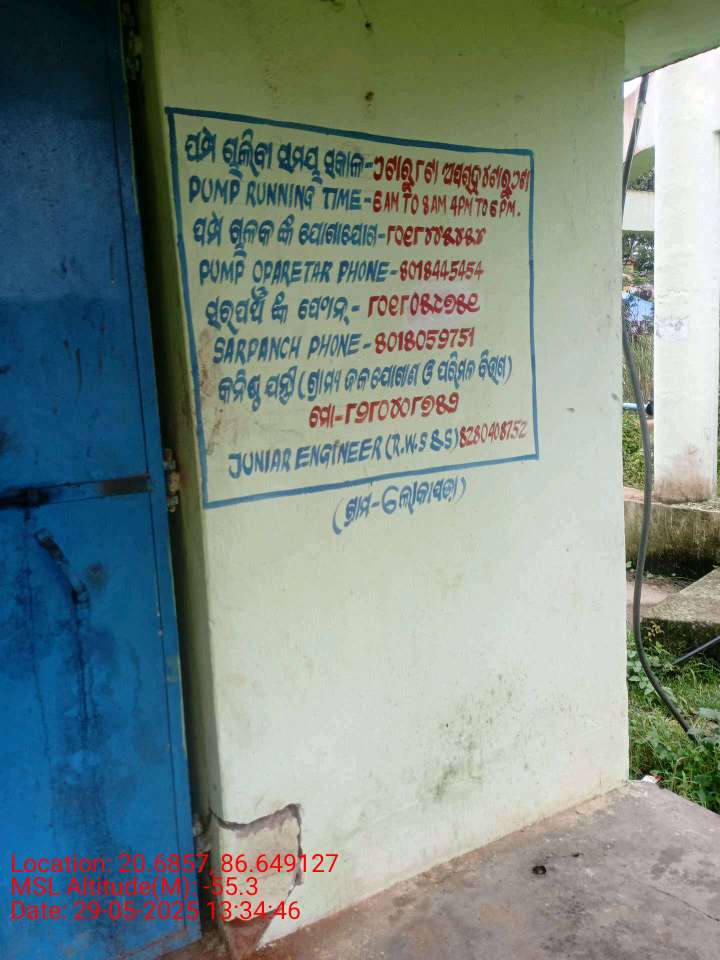 ପମ୍ପ ଚାଲିବା ସମୟ ସକାଳ-୬ଟାରୁ ୮ଟା ଅପରାହ୍ନ ୪ଟାରୁ ୬ଟା
PUMP RUNNING TIME-6AM TO 8AM 4PM TO 6PM.
ପମ୍ପ ଚାଳକ ଙ୍କ ଯୋଗାଯୋଗ-୮୦୧୮୪୪୫୪୫୪
PUMP OPARETAR PHONE-8018445454
ସରପଞ୍ଚ ଙ୍କ ଫୋନ୍-୮୦୧୮୦୫୯୭୫୧
SARPANCH PHONE-8018059751
କନିଷ୍ଠ ଯନ୍ତ୍ରୀ (ଗ୍ରାମ୍ୟ ଜଳଯୋଗାଣ ଓ ପରିମଳ ବିଭାଗ)
ମୋ-୮୨୮୦୪୦୮୭୫୨
JUNIAR ENGINEER (R.W.S & S) 8280408752
(ଗ୍ରାମ-ଲୋକାପଡ଼ା)
Location: 20.6857, 86.649127
MSL Altitude(M): -55.3
Date: 29-05-2025 13:34:46